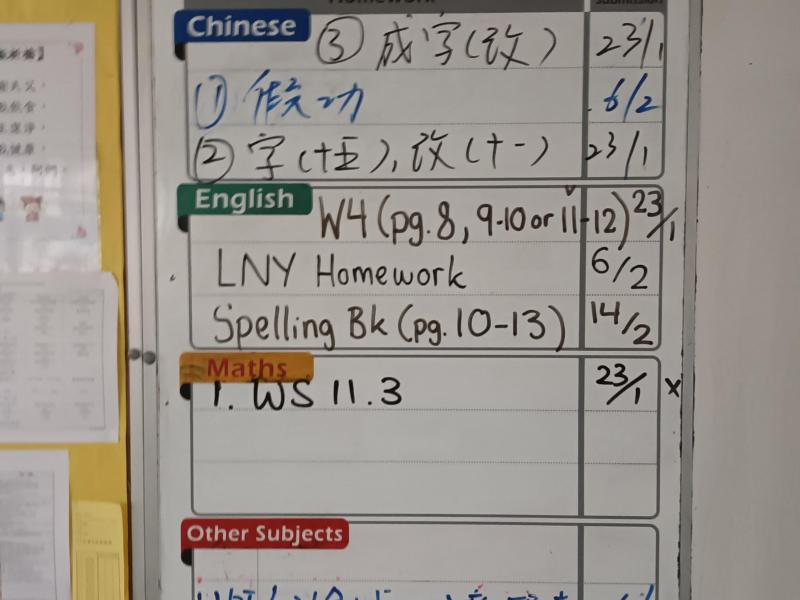 Chinese
③ 成字(改) 23/1
① 假功 6/2
② 字(十五),改(十一) 23/1
English
W4 (pg.8, 9-10 or 11-12) 23/1
LNY Homework 6/2
Spelling Bk (pg.10-13) 14/2
Maths
1. WS 11.3 23/1 x
Other Subjects